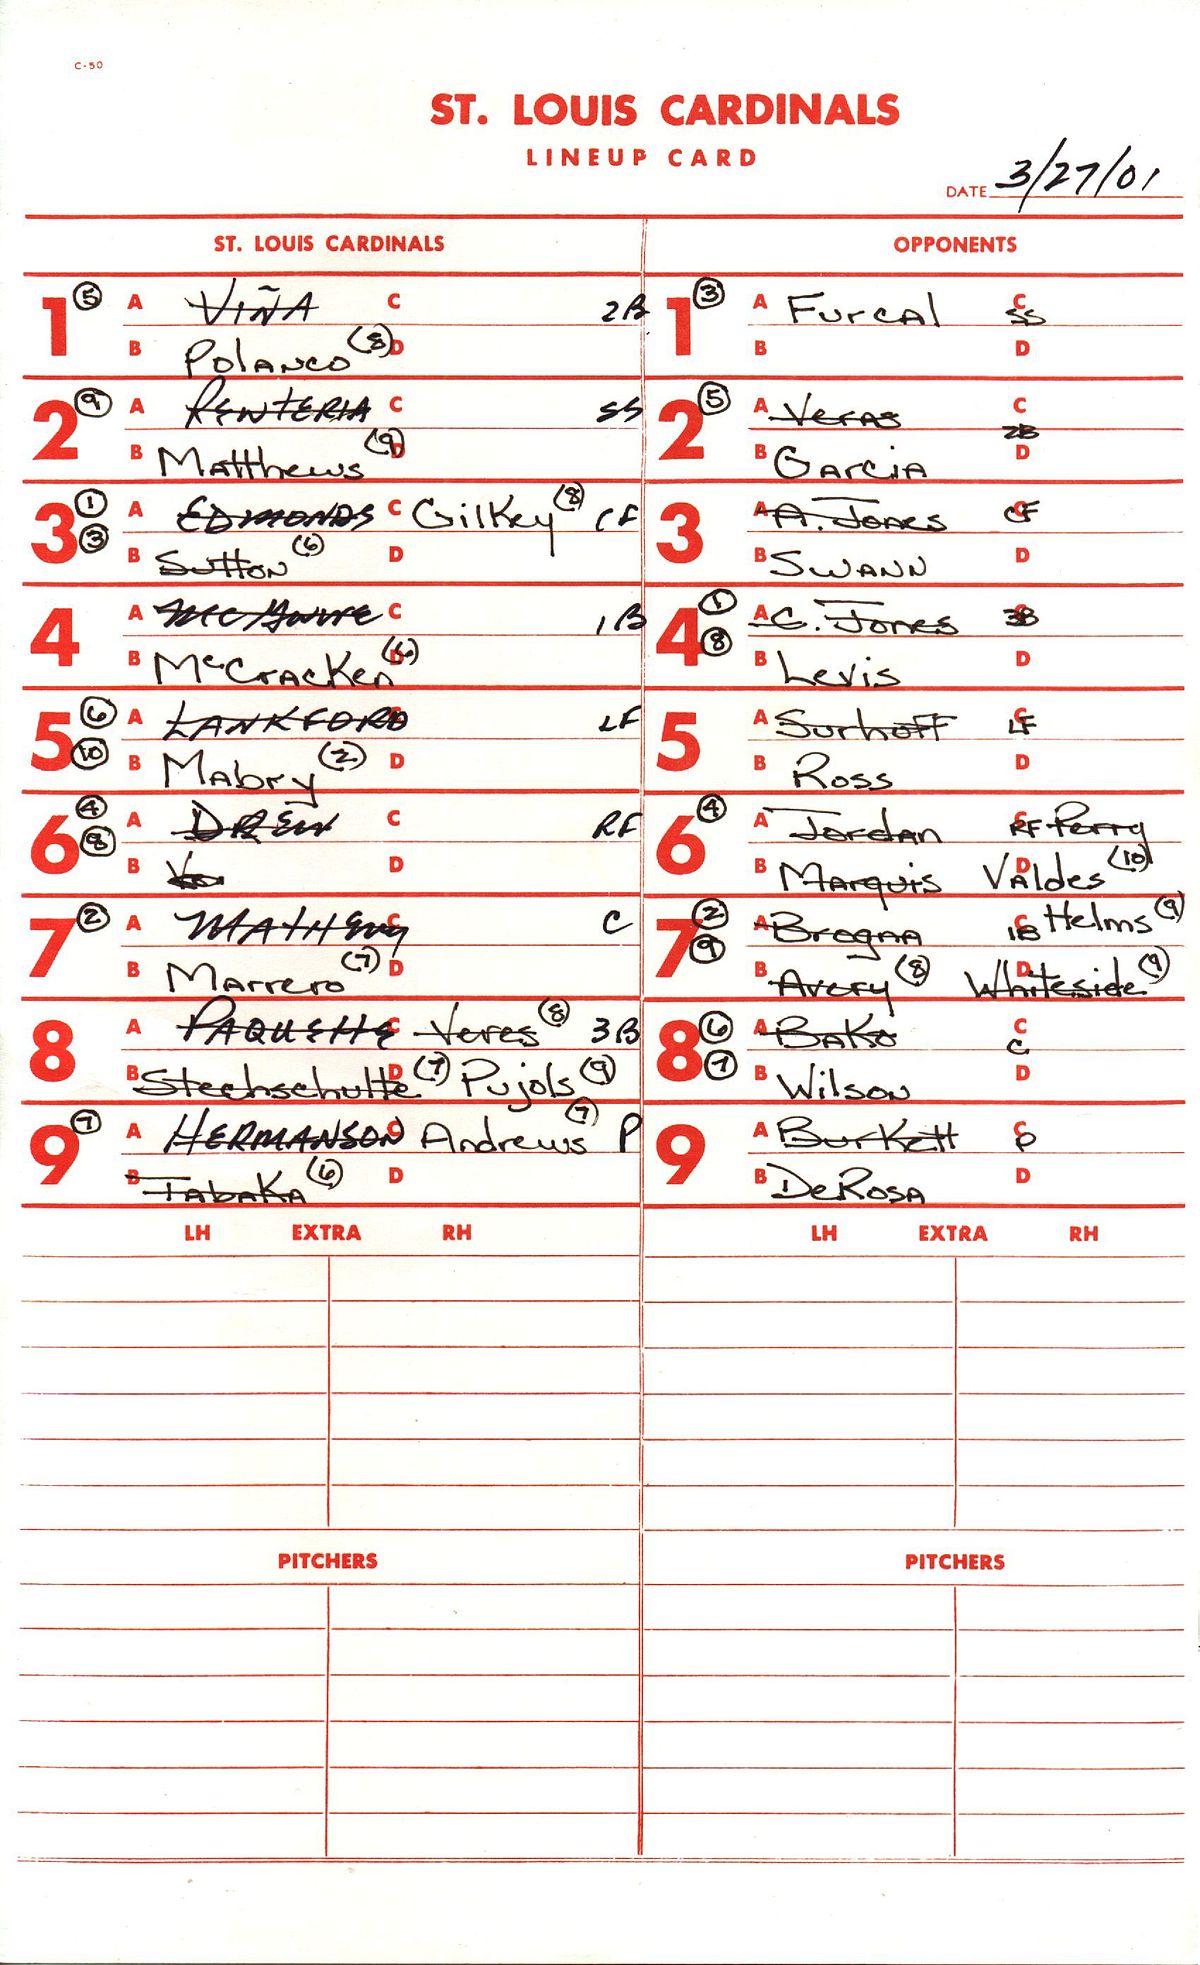 C-50
ST. LOUIS CARDINALS
LINEUP CARD
DATE 3/27/01
ST. LOUIS CARDINALS
1 (5) A VIÑA C 2B
B POLANCO (8) D
2 (9) A RENTERIA C SS
B MATTHEWS (9) D
3 (1) A EDMONDS C GILKEY (8) CF
(3) B SUTTON (6) D
4 A MCGWIRE C 1B
B McCRACKEN (6) D
5 (6) A LANKFORD C LF
(10) B MABRY (2) D
6 (4) A DREW C RF
(8) B D
7 (2) A MATHENY C C
B MARRERO (7) D
8 A PAQUETTE C VERES (8) 3B
B STECHSCHULTE (7) D PUJOLS (9)
9 (7) A HERMANSON C ANDREWS (7) P
B TABAKA (6) D
LH EXTRA RH
PITCHERS
OPPONENTS
1 (3) A FURCAL C SS
B D
2 (5) A VERAS C 2B
B GARCIA D
3 A A. JONES C CF
B SWANN D
4 (1) A C. JONES C 3B
(8) B LEVIS D
5 A SURHOFF C LF
B ROSS D
6 (4) A JORDAN C RF PERRY
B MARQUIS D VALDES (10)
7 (2) A BROGNA C 1B HELMS (9)
(9) B AVERY (8) D WHITESIDE (9)
8 (6) A BAKO C C
(7) B WILSON D
9 A BURKETT C P
B DeROSA D
LH EXTRA RH
PITCHERS